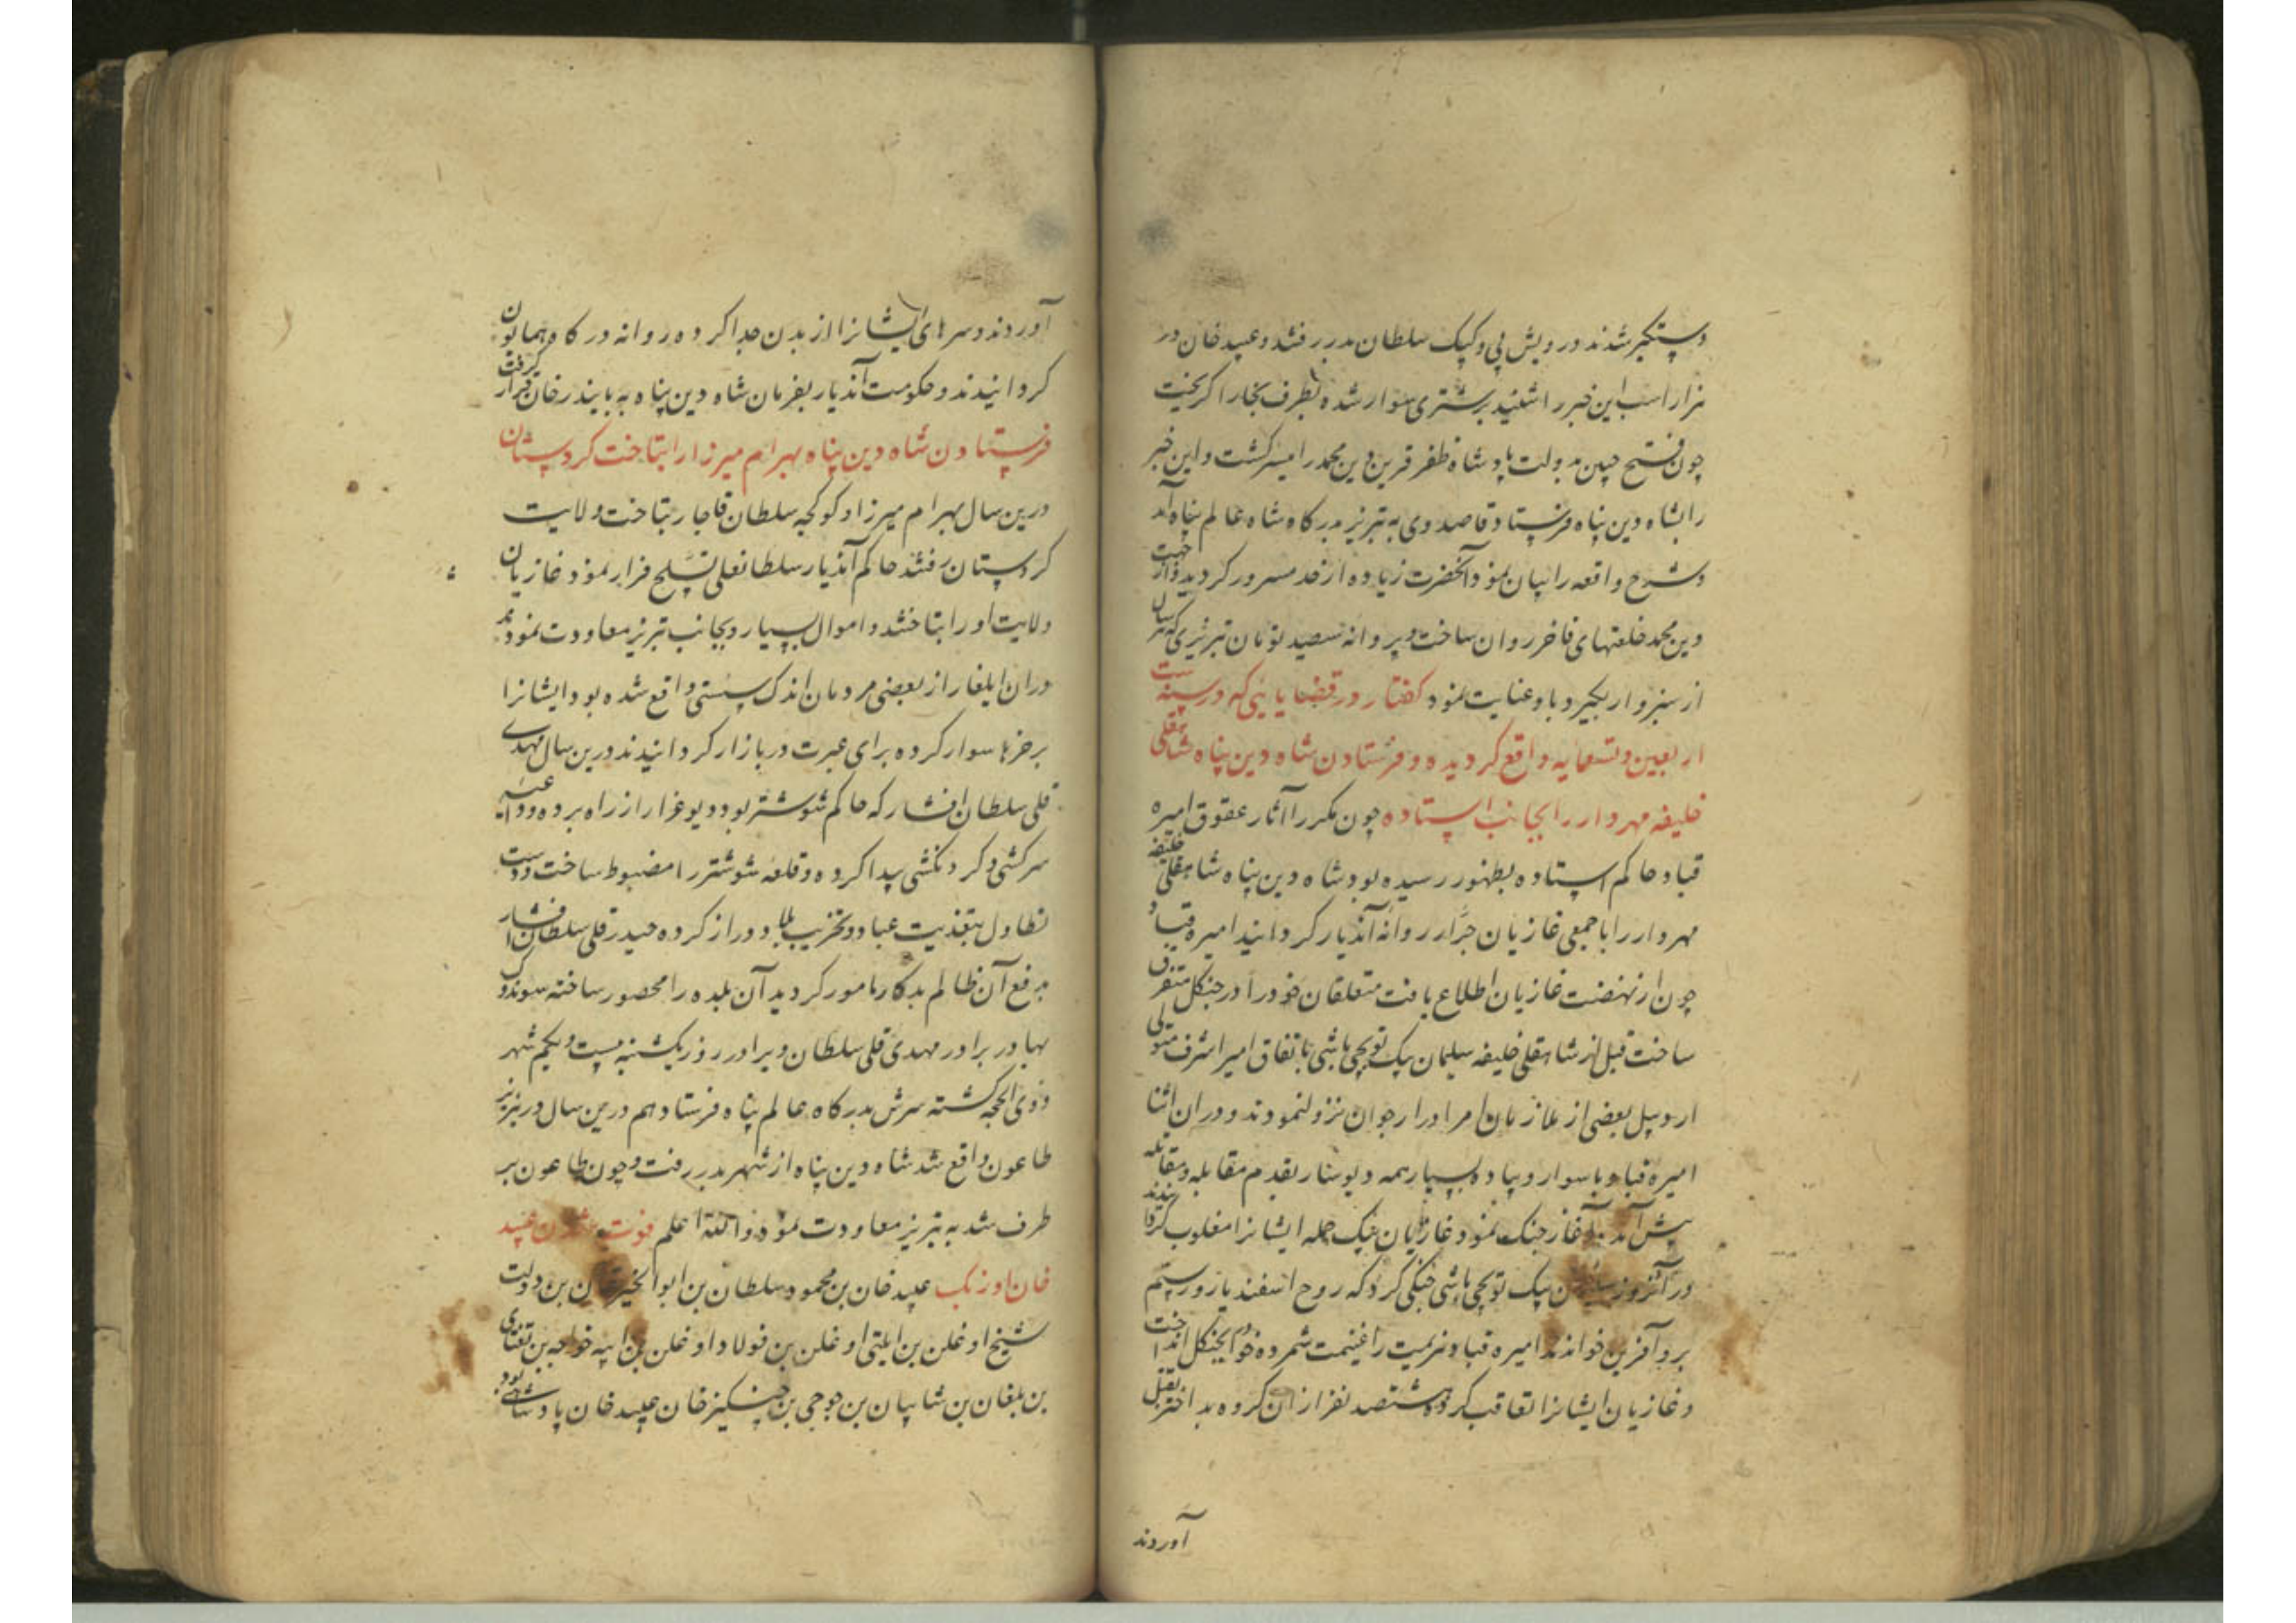 دستگیر شدند درویش بی و کپک سلطان بدر رفتند و عبید خان در
هزار اسب این خبر را شنید بر شتری سوار شده بطرف بخارا گریخت
چون فتح چنین بدولت پادشاه ظفر قرین دین محمد را میسر گشت و این خبر
را بشاه دین پناه فرستاد قاصد وی به تبریز بدرگاه شاه عالم پناه آمد
و شرح واقعه را بیان نمود آنحضرت زیاده از حد مسرور گردید و از جهت
دین محمد خلعتهای فاخر روان ساخت و پروانه سیصد تومان تبریزی که هر سال
از سبزوار بگیرد باو عنایت نمود گفتار در قضایائی که در سنه ست
اربعین و تسعمایه واقع گردیده و فرستادن شاه دین پناه شاهقلی
خلیفه مهردار را بجانب استاده چون مکرر آثار عقوق امیره
قباد حاکم استاده بظهور رسیده بود شاه دین پناه شاهقلی خلیفه
مهردار را با جمعی غازیان جرار روانه آندیار گردانید امیره قباد
چون از نهضت غازیان اطلاع یافت متعلقان خود را در جنگل متفرق
ساخت قبل از شاهقلی خلیفه سلیمان بیک توپچی باشی باتفاق امیر اشرف متولی
اردبیل بعضی از ملازمان امرا در ارجوان نزول نمودند و در آن اثنا
امیره قباد با سوار و پیاده بسیار همه دیوسار بقدم مقابله و مقاتله
پیش آمد آغاز جنگ نمود غازیان بیک حمله ایشانرا مغلوب گردانیدند
در آنروز سلیمان بیک توپچی باشی جنگی کرد که روح اسفندیار و رستم
برو آفرین خواندند امیره قباد هزیمت را غنیمت شمرده خود را بجنگل انداخت
و غازیان ایشانرا تعاقب کرده هشتصد نفر از آن گروه بد اختر بقتل
آوردند
آوردند و سرهای ایشانرا از بدن جدا کرده روانه درگاه همایون
گردانیدند و حکومت آندیار بفرمان شاه دین پناه به بایندر خان قرار گرفت
فرستادن شاه دین پناه بهرام میرزا را بتاخت کردستان
درین سال بهرام میرزا و کوکجه سلطان قاجار بتاخت ولایت
کردستان رفتند حاکم آندیار سلطانعلی تسلح فرار نمود غازیان
ولایت او را بتاختند و اموال بسیار و بجانب تبریز معاودت نمودند
در آن ایلغار از بعضی مردمان اندک سستی واقع شده بود ایشانرا
بر خرها سوار کرده برای عبرت در بازار گردانیدند درین سال مهدی
قلی سلطان افشار که حاکم شوشتر بود دیو غرا از راه برده و داعیه
سرکشی و گردنکشی پیدا کرده و قلعه شوشتر را مضبوط ساخت و دست
تطاول بتعذیب عباد و تخریب بلاد دراز کرده حیدر قلی سلطان افشار
بدفع آن ظالم بدکار مامور گردید آن بلده را محصور ساخته سوندوک
بهادر برادر مهدی قلی سلطان و برادر روز یکشنبه بیست و یکم شهر
ذوی الحجه کشته سرش بدرگاه عالم پناه فرستاد هم درین سال در تبریز
طاعون واقع شد شاه دین پناه از شهر بدر رفت و چون طاعون بر
طرف شد به تبریز معاودت نمود و الله اعلم فوت شدن عبید
خان اوزبک عبید خان بن محمود سلطان بن ابوالخیر خان بن دولت
شیخ اوغلن بن ایلتی اوغلن بن فولاد اوغلن بن ایبه خواجه بن تغتای
بن بلغان بن شایبان بن جوجی بن چنگیز خان عبید خان پادشاهی بود